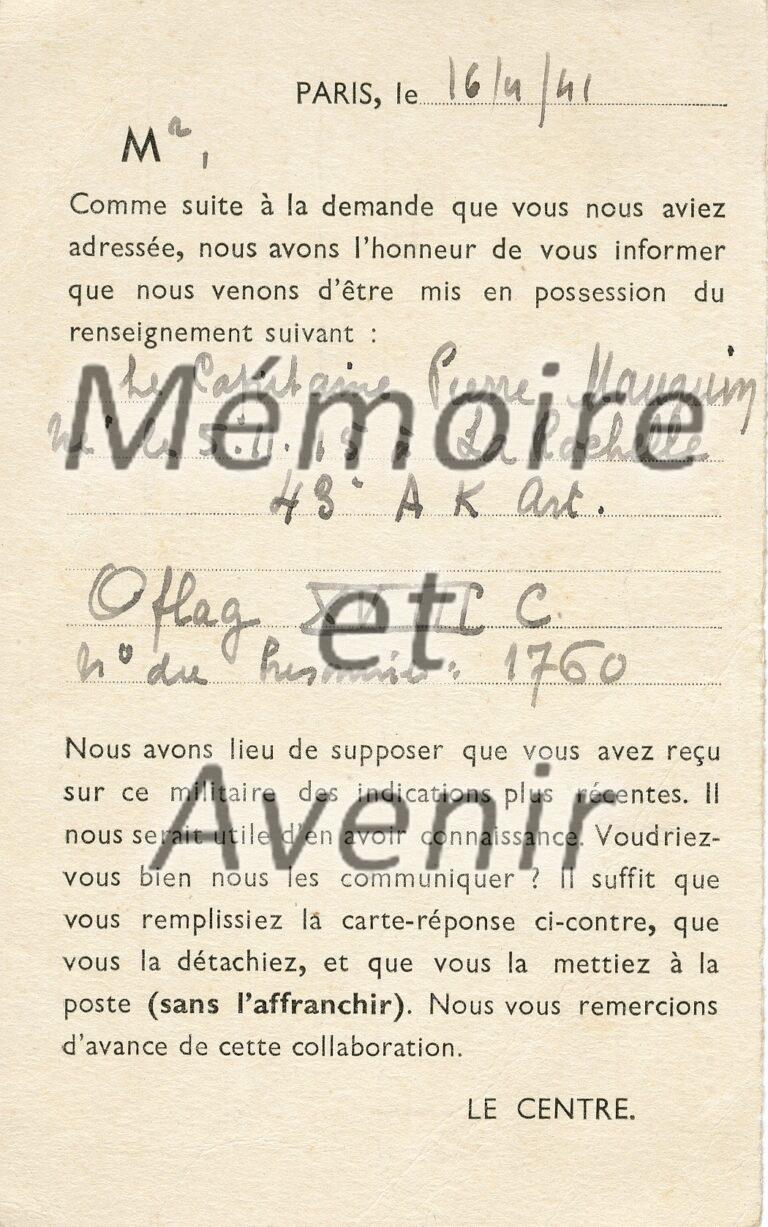 PARIS, le 16/4/41
Mr,
Comme suite à la demande que vous nous aviez
adressée, nous avons l'honneur de vous informer
que nous venons d'être mis en possession du
renseignement suivant :
Le Capitaine Pierre
La Rochelle
43e A K Art.
Oflag C
N° du Prisonnier : 1760
Nous avons lieu de supposer que vous avez reçu
sur ce militaire des indications plus récentes. Il
nous serait utile d'en avoir connaissance. Voudriez-
vous bien nous les communiquer ? Il suffit que
vous remplissiez la carte-réponse ci-contre, que
vous la détachiez, et que vous la mettiez à la
poste (sans l'affranchir). Nous vous remercions
d'avance de cette collaboration.
LE CENTRE.
Mémoire
et
Avenir